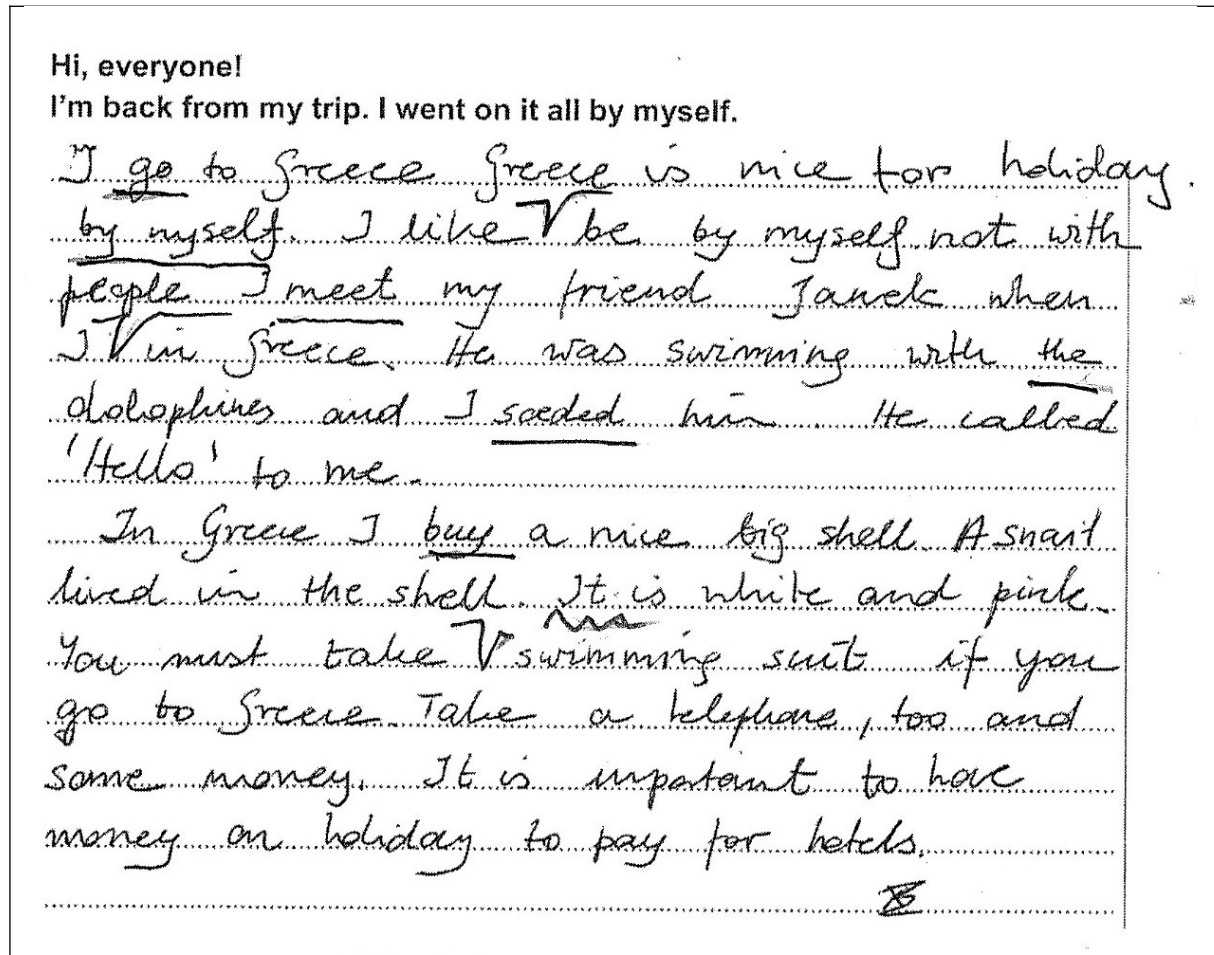 Hi, everyone!
I'm back from my trip. I went on it all by myself.
I go to Greece Greece is nice for holiday.
by myself. I like be by myself not with
people I meet my friend Janek when
I in Greece. He was swimming with the
dolophines and I seeded him. He called
'Hello' to me.
In Greece I buy a nice big shell A snail
lived in the shell. It is white and pink.
You must take swimming suit if you
go to Greece. Take a telephone, too and
some money. It is impotant to have
money on holiday to pay for hotels.